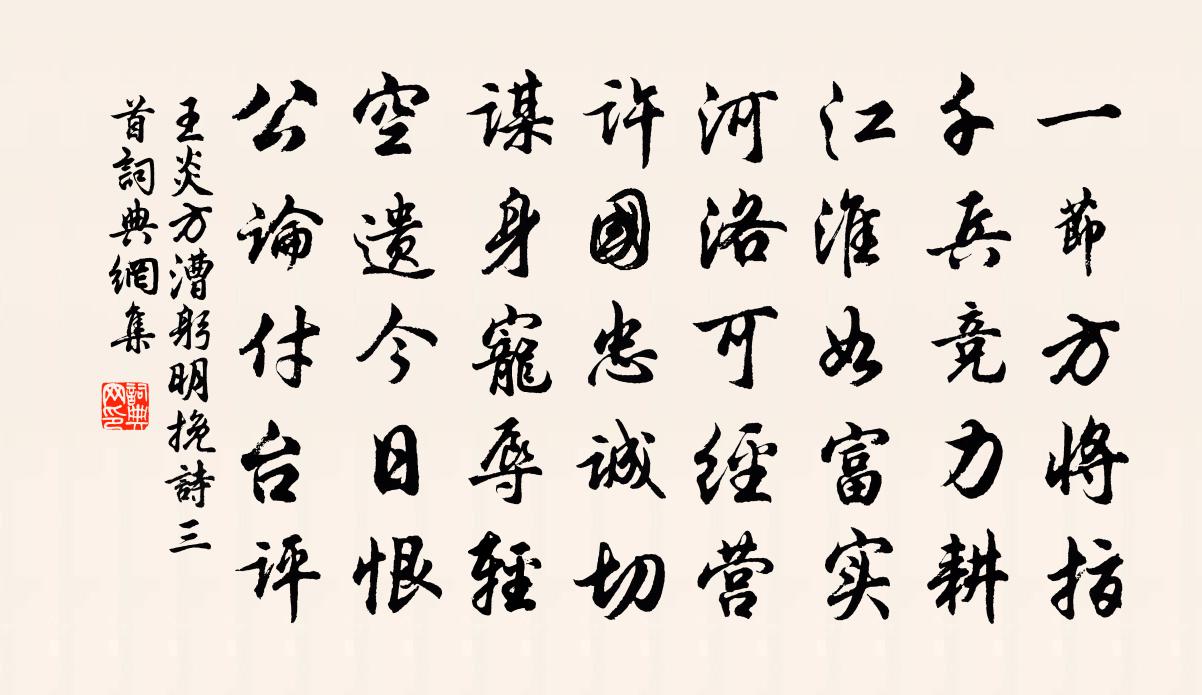 一節方將指
千兵競力耕
江淮如富实
河洛可經营
許國忠誠切
謀身寵辱輕
空遗今日恨
公論付台评
王炎方漕躬明挽詩三
首詞典網集
詞典
网印